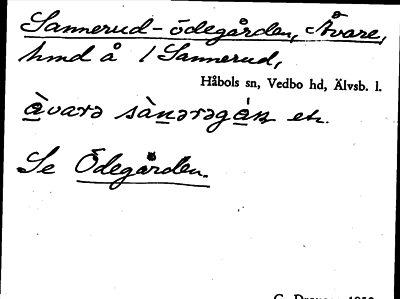 Sannerud-ödegården, Åvare,
hmd å 1 Sannerud,
Håbols sn, Vedbo hd, Älvsb. l.
àvarə sànərəgàɳ etc.
Se Ödegården.